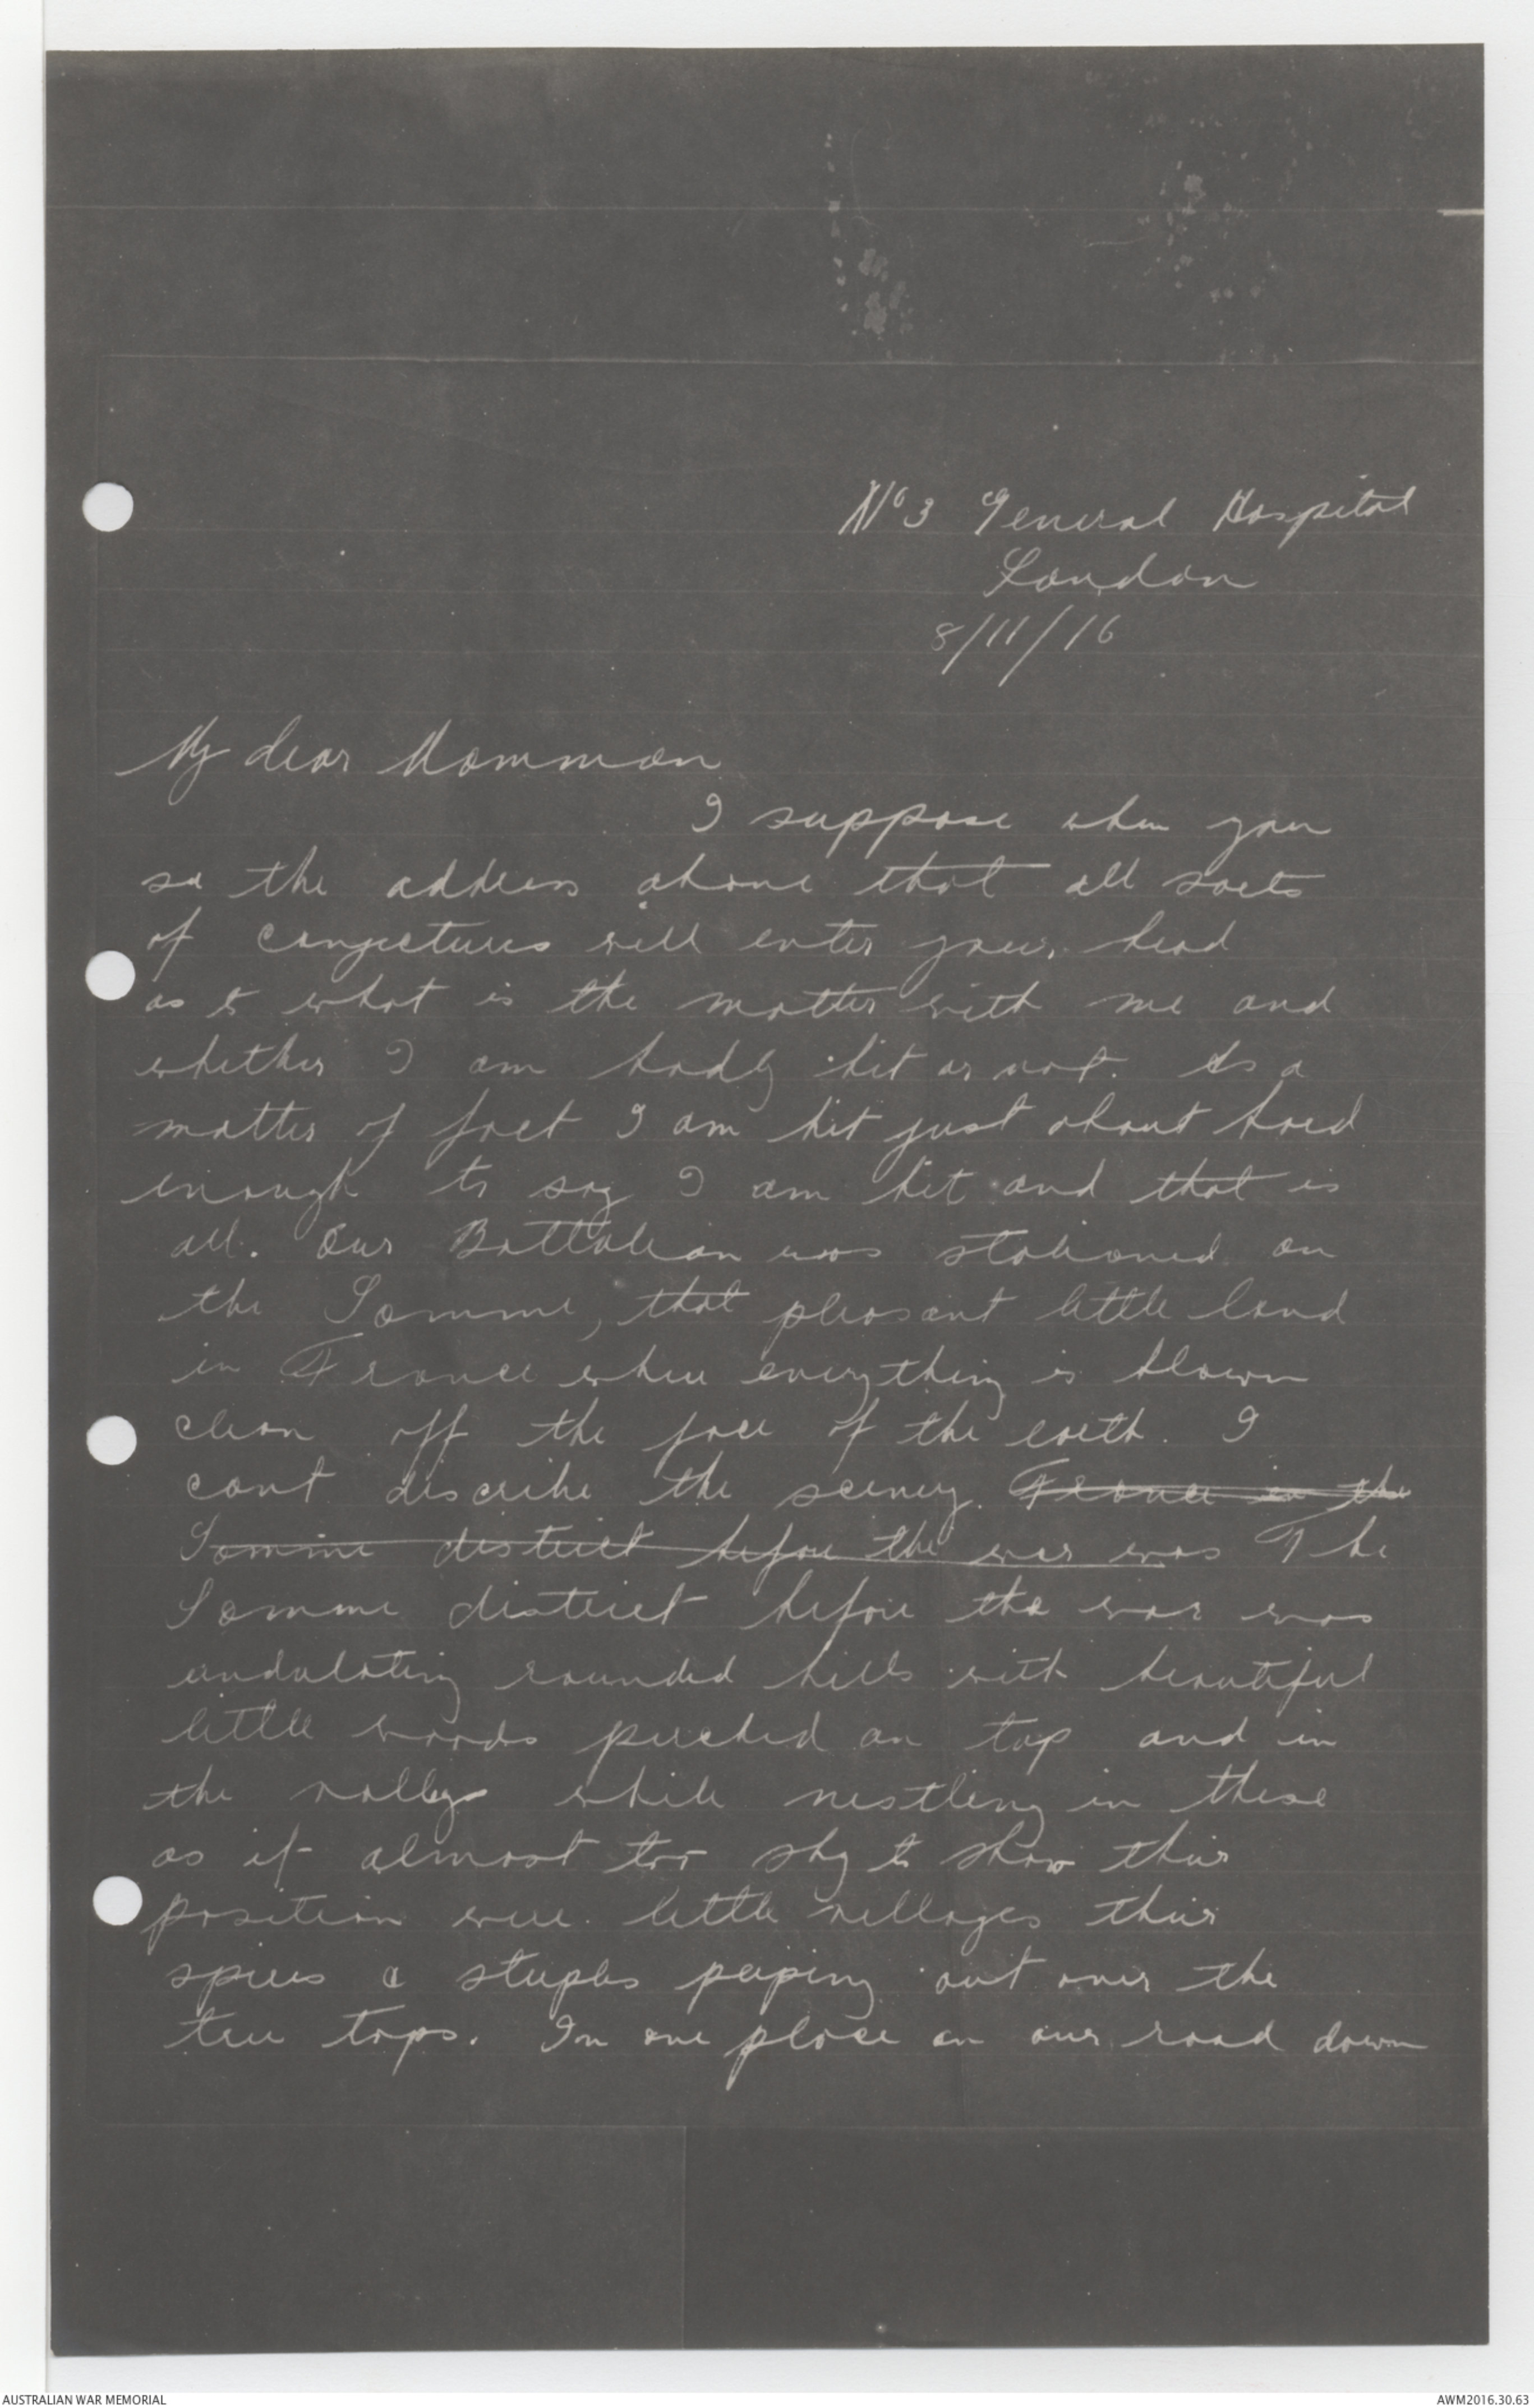 No 3 General Hospital
London
8/11/16
My dear Mamman
I suppose when you
see the address above that all sorts
of conjectures will enter your head
as to what is the matter with me and
whether I am badly hit or not. As a
matter of fact I am hit just about hard
enough to say I am hit and that is
all. Our Battalion was stationed on
the Somme, that pleasant little land
in France where everything is blown
clean off the face of the earth. I
cant describe the scenery. France in the
Somme district before the war was The
Somme district before the war was
undulating rounded hills with beautiful
little woods perched on top and in
the valleys while nestling in these
as if almost too shy to show their
position were little villages their
spires & steeples peeping out over the
tree tops. In one place on our road down
AUSTRALIAN WAR MEMORIAL
AWM2016.30.63